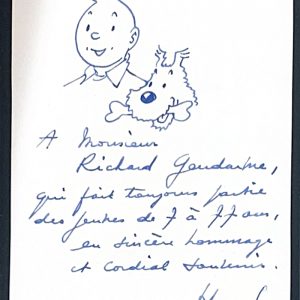 A Monsieur
Richard Gendarme,
qui fait toujours partie
des jeunes de 7 à 77 ans,
en sincère hommage
et cordial souvenir.